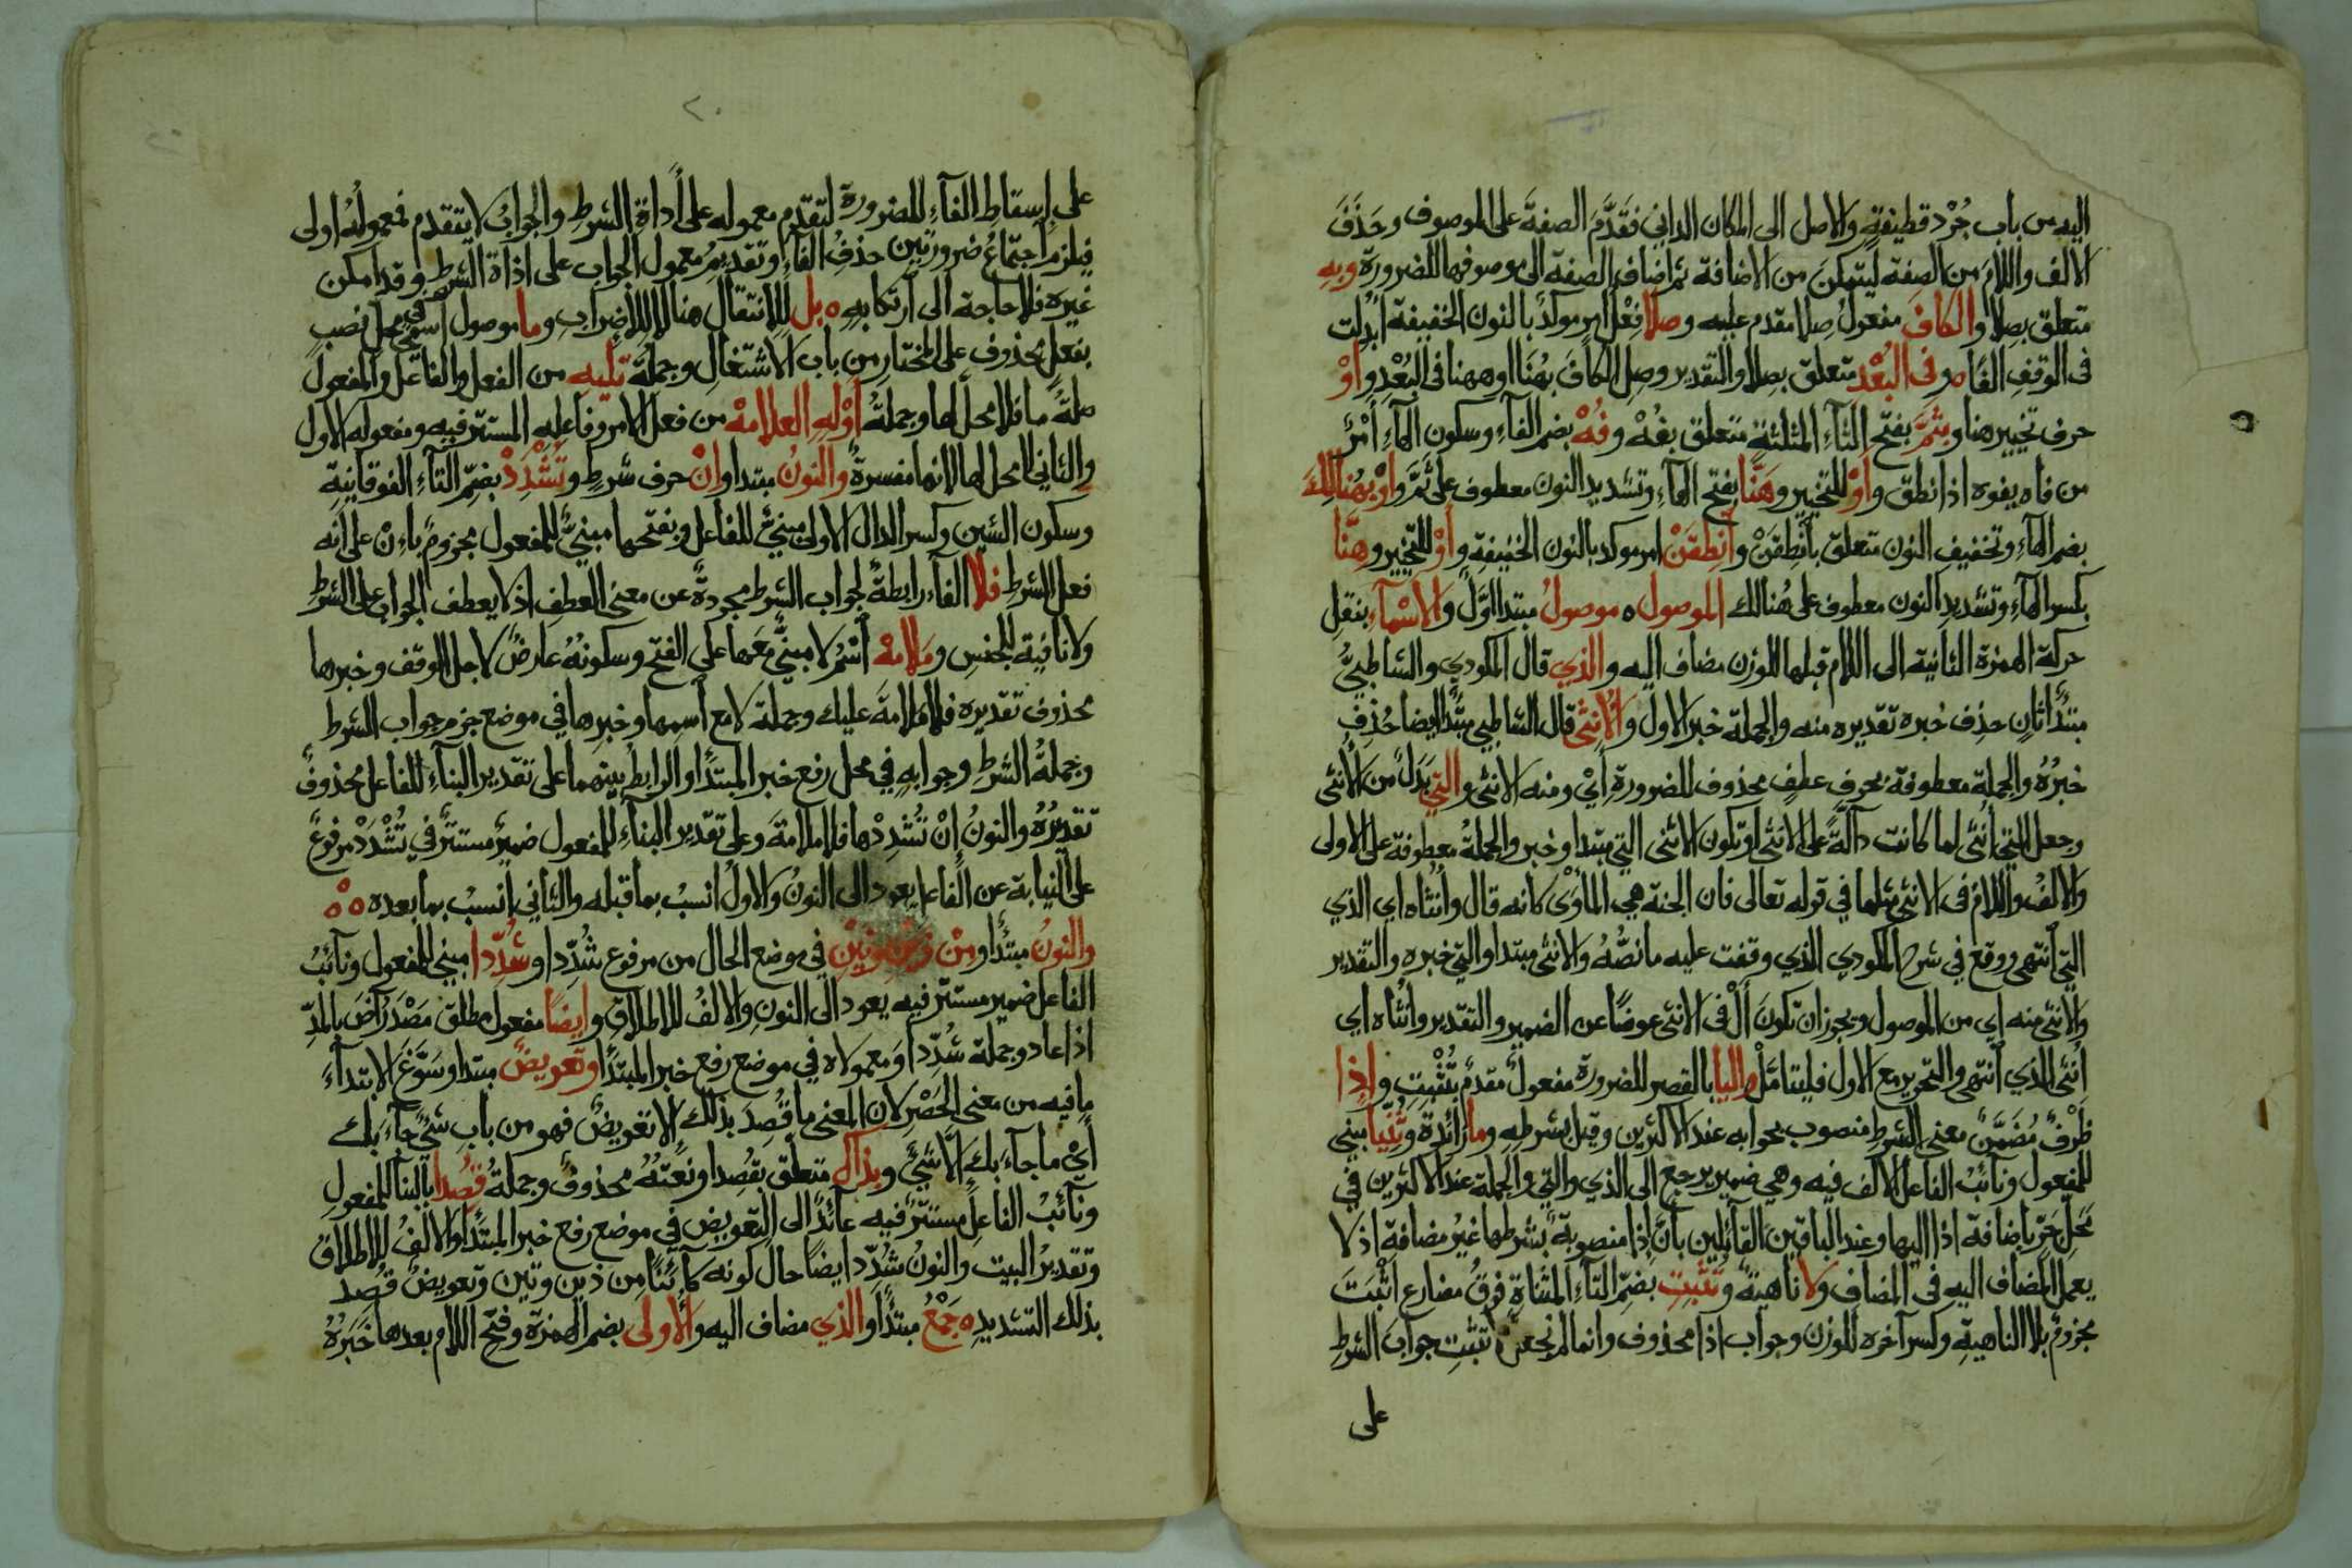 اليه من باب جُرْد قطيفةٍ والاصل الى المكان الداني فقَدَّمَ الصفةَ على الموصوف وحَذَفَ
الالف واللامَ من الصفة ليتمكنَ من الاضافة ثم اضاف الصفة الى موصوفها للضرورة وبه
متعلق بصِلا والكافَ مفعولُ صِلا مقدم عليه وصلا فِعْلُ امرٍ مؤكدٌ بالنون الخفيفة اُبْدِلت
فى الوقفِ الفًا ه وفى البُعْدِ متعلق بصِلا والتقدير وصِلِ الكافَ بهُنَا اوههنا فى البُعْدِ واوْ
حرف تخيير هنا وبثَمَّ بفتح الثآءِ المثلثةِ متعلق بفُهْ وفُهْ بضم الفآءِ وسكون الهآءِ اَمْرٌ
من فاه يفوه اذا نطق واَوْ للتخيير وهَنَّا بفتح الهآءِ وتشديد النون معطوف على ثَمَّ واَوْ بهُنَالِكَ
بضم الهآءِ وتخفيفِ النون متعلق بانْطِقَنْ وانطِقَنْ امر موكد بالنون الخفيفةِ واَوْ للتخيير وهِنَّا
بكسر الهآءِ وتشديدِ النون معطوف على هُنالك الموصول ه موصولُ مبتدا اوَّلُ والاَسْمآءِ بنقلِ
حركة الهمزة الثانية الى اللام قبلها للوزن مضاف اليه والذي قال المكودي والشاطبيُّ
مبتدأ ثانٍ حذِف خبره تقديره منه والجملة خبر الاول والاُنثى قال الشاطبي مبتدأ ايضا حُذِفَ
خبرُهُ والجملة معطوفة بحرف عطفٍ محذوف للضرورةِ اَيْ ومنه الانثى والتي بَدَلٌ من الانثى
وجعل التي اُنثى لما كانت دآلَّةً على الانثى اوتكون الانثى التي مبتدا وخبر والجملةُ معطوفة على الاولى
والالفُ واللامُ فى الانثى مثلها في قوله تعالى فان الجنة هي المأوَى كانه قال وأُنثاه اي الذي
التي انتهى ووقع في شرح المكودي الذي وقفت عليه ما نصُّهُ والانثى مبتدا والتي خبره والتقدير
والانثى منه اي من الموصول ويجوز ان تكونَ اَلْ فى الانثى عوضًا عن الضمير والتقدير وانثاه اي
اُنثى الذي انتهى والتحرير مع الاول فليتامَّلْ واليا بالقصر للضرورة مفعولٌ مقدم بتُثْبِتِ واِذا
ظَرْفٌ مُضَمَّنٌ معنى الشرطِ منصوب بجوابه عند الاكثرين وقيل بشرطِهِ وما زائدة وثُنِّيا مبني
للمفعول ونآئبُ الفاعل الالف فيه وهي ضمير يرجع الى الذي والتي والجملة عند الاكثرين في
محَلِّ جَرٍّ باضافة اذا اليها وعند الباقين القآئلين بأنَّ إذا منصوبة بشرطها غيرُ مضافة اذ لا
يعمل المضاف اليهِ فى المضافِ ولا ناهيةٌ وتُثْبِتِ بضمِّ التآءِ المثناةِ فوقُ مضارع أثْبَتَ
مجزومٌ بلا الناهيةِ وكسر آخره للوزن وجواب اذا محذوف وانما لم نجعلْ لا تثبتِ جوابَ الشرطِ
على
٢٠
على إسقاطِ الفآءِ للضرورة لتقدّم معموله على أداةِ الشرطِ والجوابُ لا يتقدم فمعمولُهُ اولى
فيلزم اجتماعُ ضرورتَين حذفُ الفآءِ وتقديمُ معمول الجواب على اداة الشرط وقد امكن
غيره فلا حاجة الى ارتكابِهِ ه بل للانتقال هنا لا للاِضرابِ وما موصول اسمي في محل نصبٍ
بفعلٍ محذوف على المختار من باب الاشتغالِ وجملة تليه من الفعل والفاعل والمفعول
صلةُ ما فلا محل لها وجملةُ اَوْلِهِ العلامهْ من فعل الامر وفاعله المستتر فيه ومفعوله الاول
والثاني لا محل لها لانها مفسرة والنونُ مبتدا واِنْ حرف شرطٍ وتُشْدِدْ بضمِّ التآءِ الفوقانيةِ
وسكون الشين وكسر الدال الاولى مبنيٌّ للفاعل وبفتحها مبنيٌّ للمفعول مجزومٌ باِنْ على انه
فعل الشرطِ فلا الفآء رابطةٌ لجواب الشرط مجردةٌ عن معنى العطفِ اذ لا يعطف الجواب على الشرط
ولا نافية للجنسِ ومَلامهْ اسْمُ لا مبنيٌّ معَها على الفتحِ وسكونهُ عارضٌ لاجل الوقف وخبرها
محذوف تقديره فلا ملامةَ عليك وجملة لا مع اسمِها وخبرِها في موضع جزم جواب الشرط
وجملةُ الشرطِ وجوابهِ في محل رفع خبر المبتدأ والرابط بينهما على تقدير البنآءِ للفاعل محذوفٌ
تقديرُهُ والنونُ إنْ تُشْدِدْها فلا ملامةَ وعلى تقدير البنآءِ للمفعول ضميرٌ مستترٌ في تُشْدَدْ مرفوعٌ
على النيابة عن الفاعل يعود الى النونُ والاولُ انسبُ بما قبله والثاني انسبُ بما بعده ه ه
والنونُ مبتدأ ومِنْ ذَيْنِ وتَيْنِ في موضع الحال من مرفوع شُدِّدا وشُدِّدا مبني للمفعول ونآئبُ
الفاعل ضمير مستتر فيه يعود الى النونِ والالفُ للاطلاقِ وايضًا مفعول مطلق مَصْدَرُ آضَ بالمدِّ
اذا عاد وجملة شُدِّدا ومعمولاه في موضع رفع خبر المبتدأ وتعويضٌ مبتدا وسَوَّغَ الابتدآءَ
ما فيه من معنى الحَصْرِ لان المعنى ما قُصِدَ بذلك الا تعويضٌ فهو من باب شئٌ جآءَ بك
اَيْ ما جآءَ بك الَّا شئٌ وبذاك متعلق بقُصِدا ونعتُهُ محذوفٌ وجملةُ قُصِدا بالبنآ للمفعولِ
ونآئبُ الفاعلِ مستترٌ فيه عآئدٌ الى التعويض في موضع رفع خبر المبتدأ والالفُ للاطلاقُ
وتقديرُ البيتِ والنونُ شُدِّدَ ايضًا حال كونه كآئنًا مِن ذين وتين وتعويضٌ قُصِد
بذلك التشديدِ ه جَمْعُ مبتدأ والذي مضاف اليه والأُولى بضم الهمزة وفتح اللام بعدها خَبَرُهُ